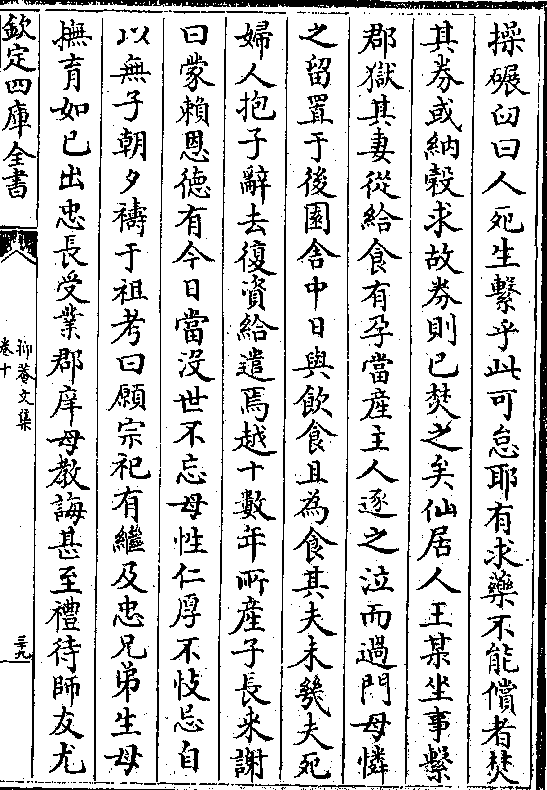 操碾臼曰人死生繫乎此可怠耶有求藥不能償者焚
其券或納穀求故券則已焚之矣仙居人王某坐事繫
郡獄其妻從給食有孕當産主人逐之泣而過門母憐
之留置于後園舍中日與飲食且為食其夫未幾夫死
婦人抱子辭去復資給遣焉越十數年所産子長來謝
曰蒙賴恩德有今日當沒世不忘母性仁厚不忮忌自
以無子朝夕禱于祖考曰願宗祀有繼及忠兄弟生母
撫育如已出忠長受業郡庠母教誨甚至禮待師友尤
欽定四庫全書
抑菴文集
卷十
三十九